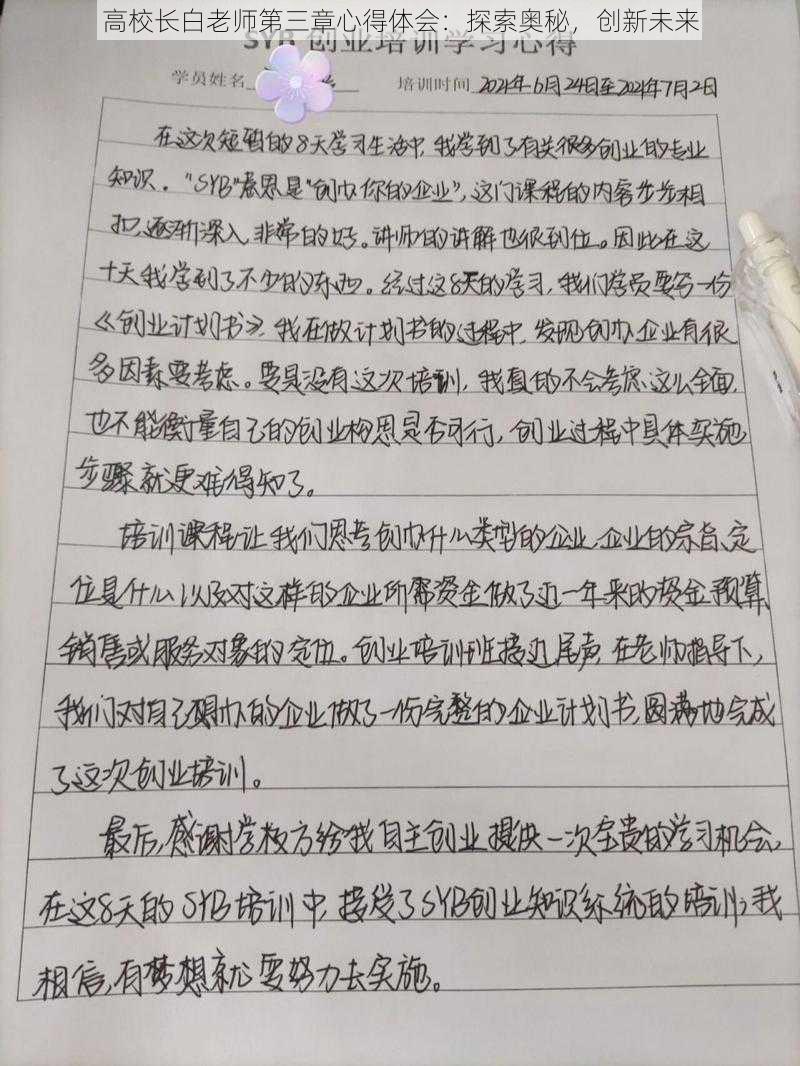 高校长白老师第三章心得体会：探索奥秘，创新未来
SYB 创业培训学习心得
学员姓名 培训时间 2021年6月24日至2021年7月2日
在这次短暂的8天学习生活中，我学到了有关很多创业的专业
知识。"SYB"意思是"创办你的企业"，这门课程的内容步步相
扣，逐渐深入，非常的好。讲师的讲解也很到位。因此在这
十天我学到了不少的东西。经过这8天的学习，我们学员要写一份
《创业计划书》，我在做计划书的过程中，发现创办企业有很
多因素要考虑。要是没有这次培训，我真的不会考虑这么全面，
也不能衡量自己的创业构思是否可行，创业过程中具体实施
步骤就更难得知了。
培训课程让我们思考创办什么类型的企业、企业的宗旨、定
位是什么以及对这样的企业所需资金做了近一年来的资金预算、
销售或服务对象的定位。创业培训班接近尾声，在老师指导下，
我们对自己想办的企业做了一份完整的企业计划书，圆满地完成
了这次创业培训。
最后，感谢学校方给我自主创业提供一次宝贵的学习机会，
在这8天的SYB培训中，接受了SYB创业知识系统的培训，我
相信，有梦想就要努力去实施。